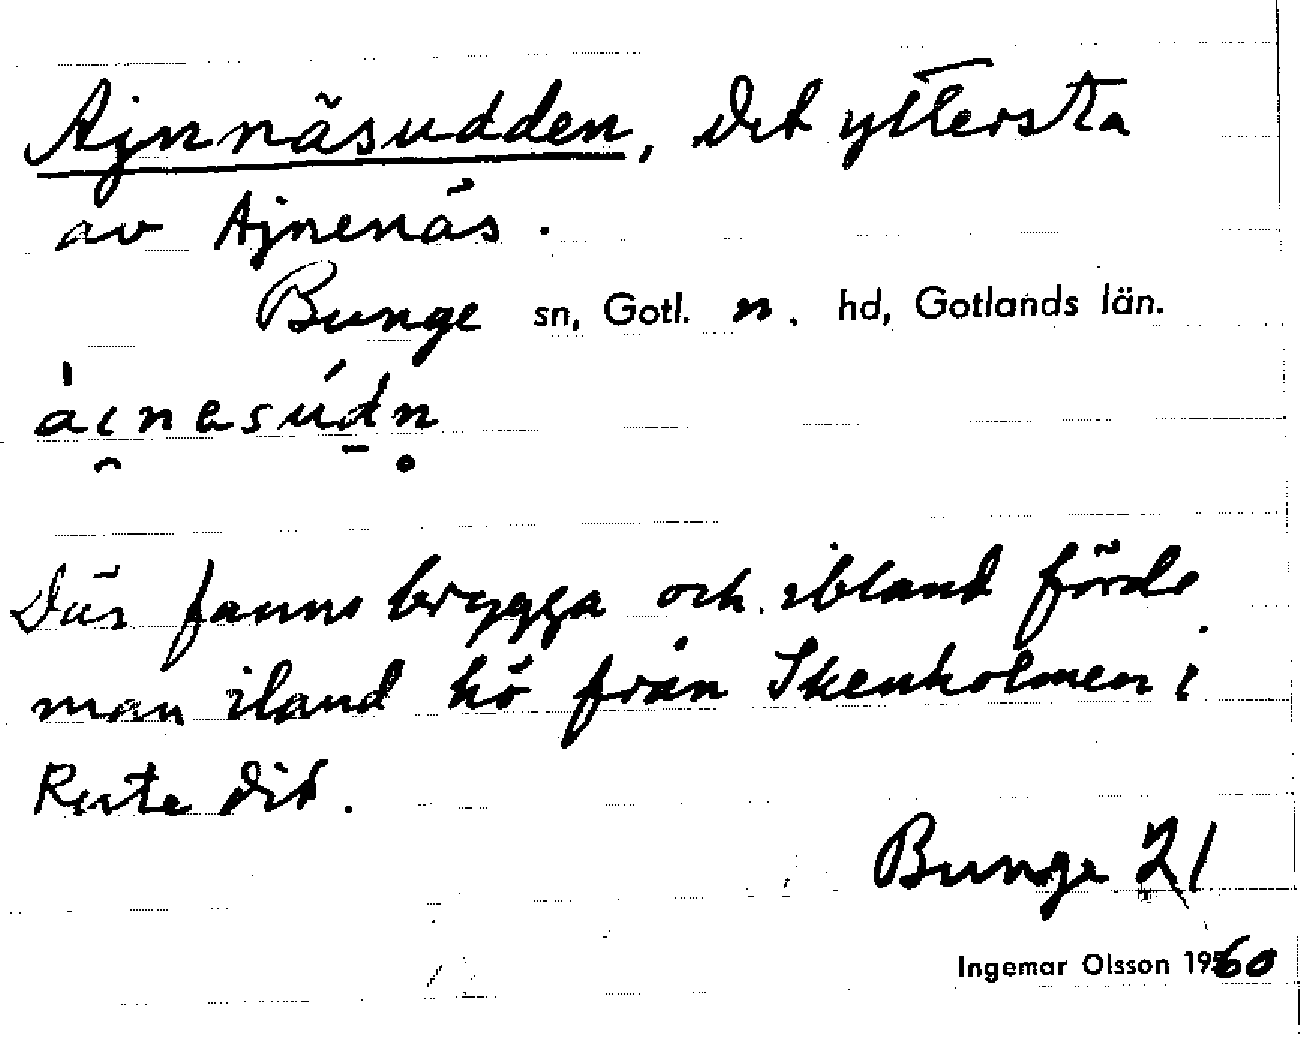 Ajnnäsudden, det yttersta
av Ajnenäs.
Bunge sn, Gotl. n. hd, Gotlands län.
ài̯nasúd̠n̥
Där fanns brygga och ibland förde
man iland hö från Skenholmen i
Rute dit.
Bunge 21
Ingemar Olsson 1960